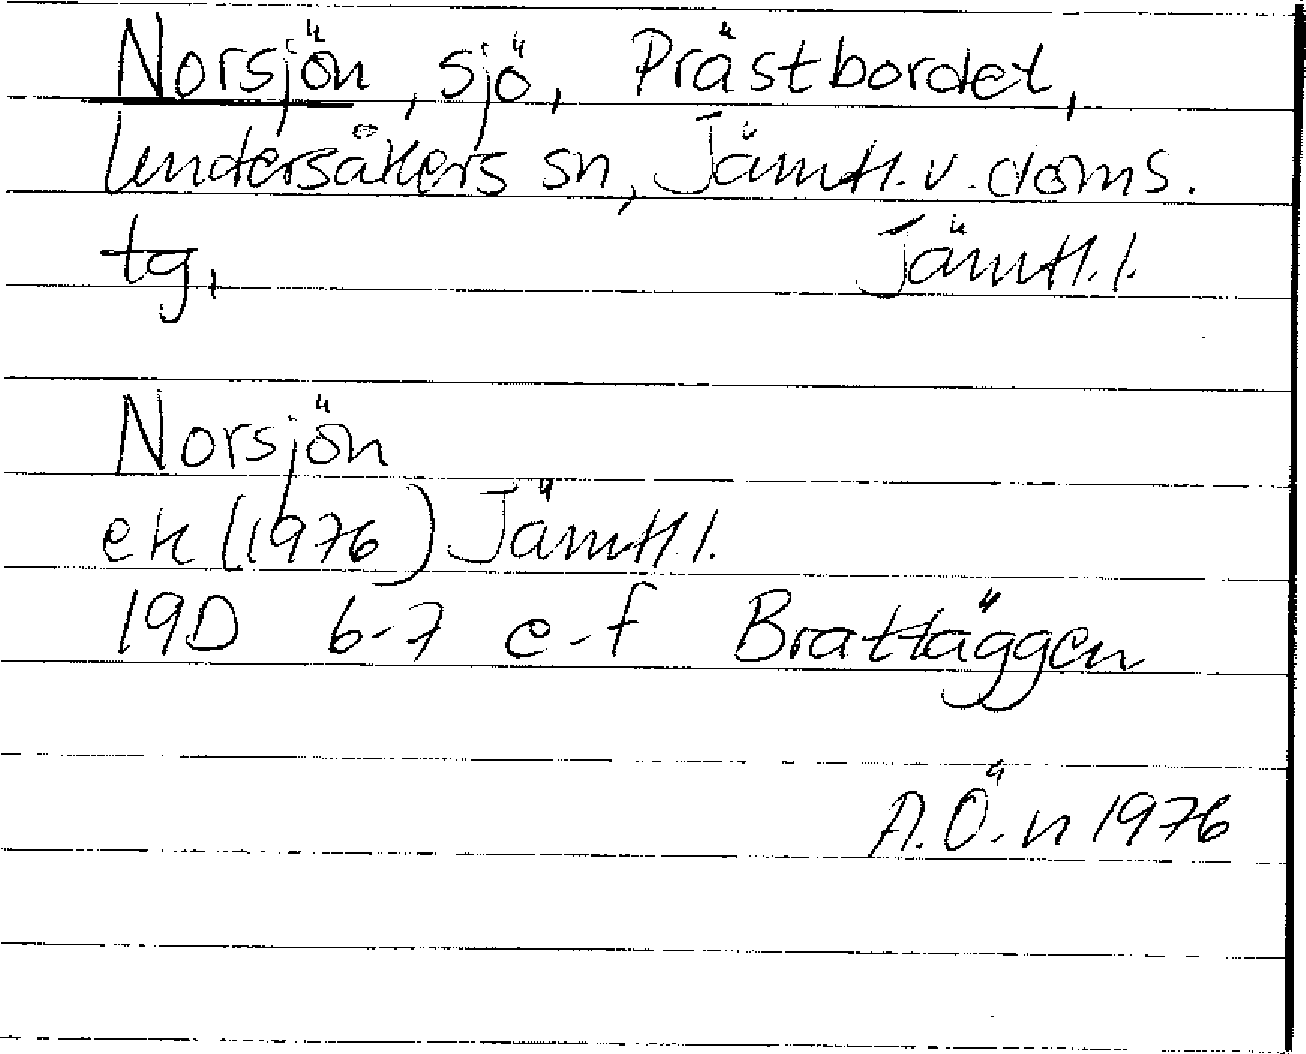 Norsjön, sjö, Prästbordet,
Undersåkers sn, Jämtl. v. doms.
tg, Jämtl. l.
Norsjön
ek (1976) Jämtl. l.
19D 6-7 e-f Bratläggen
A.Ö-n 1976